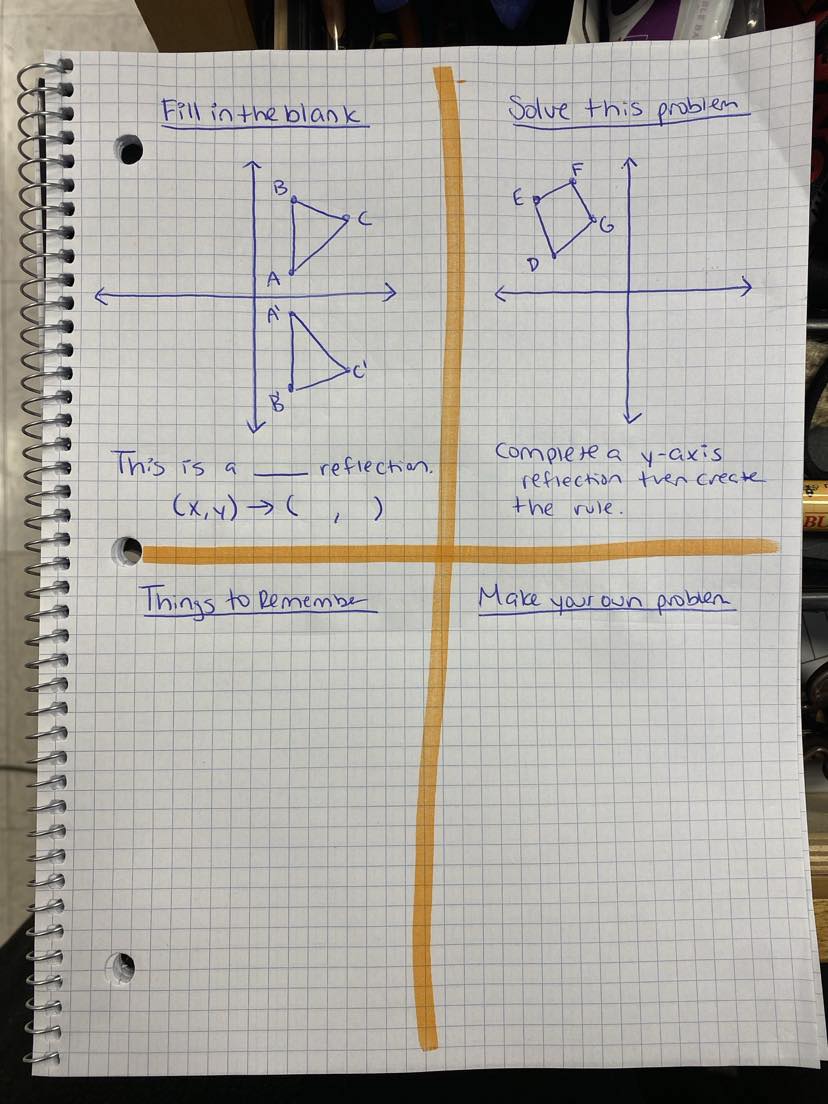 Fill in the blank
B
C
A
A'
C'
B'
This is a ____ reflection.
(x,y) → ( , )
Solve this problem
F
E
G
D
Complete a y-axis
reflection then create
the rule.
Things to Remember
Make your own problem
BL